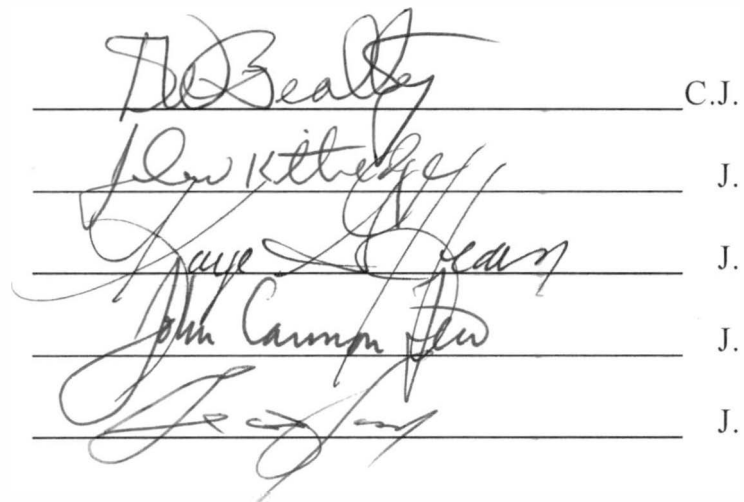 Beatty C.J.
John Kittredge J.
Kaye Hearn J.
John Cannon Few J.
J.